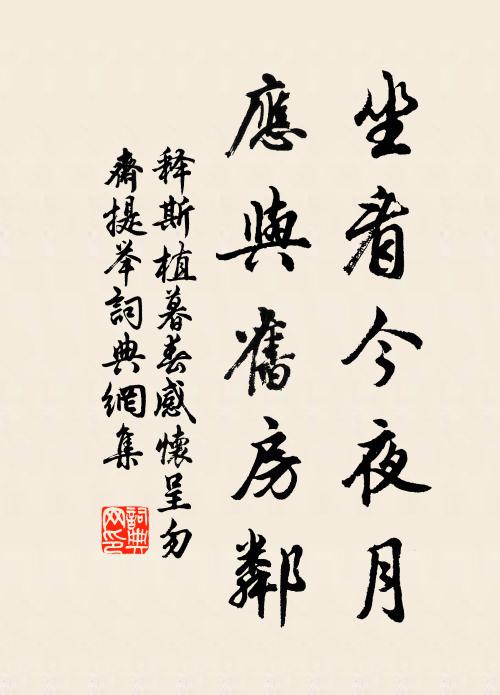 坐看今夜月
應與舊房鄰
释斯植暮春感懷呈勿
齋提举詞典網集
詞典网印